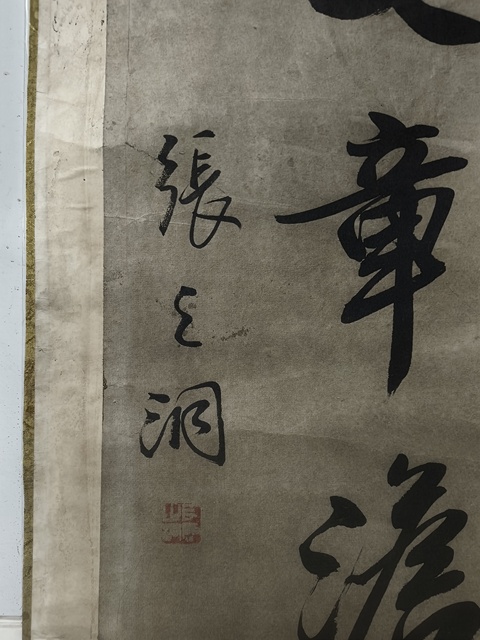 章澹
張之洞